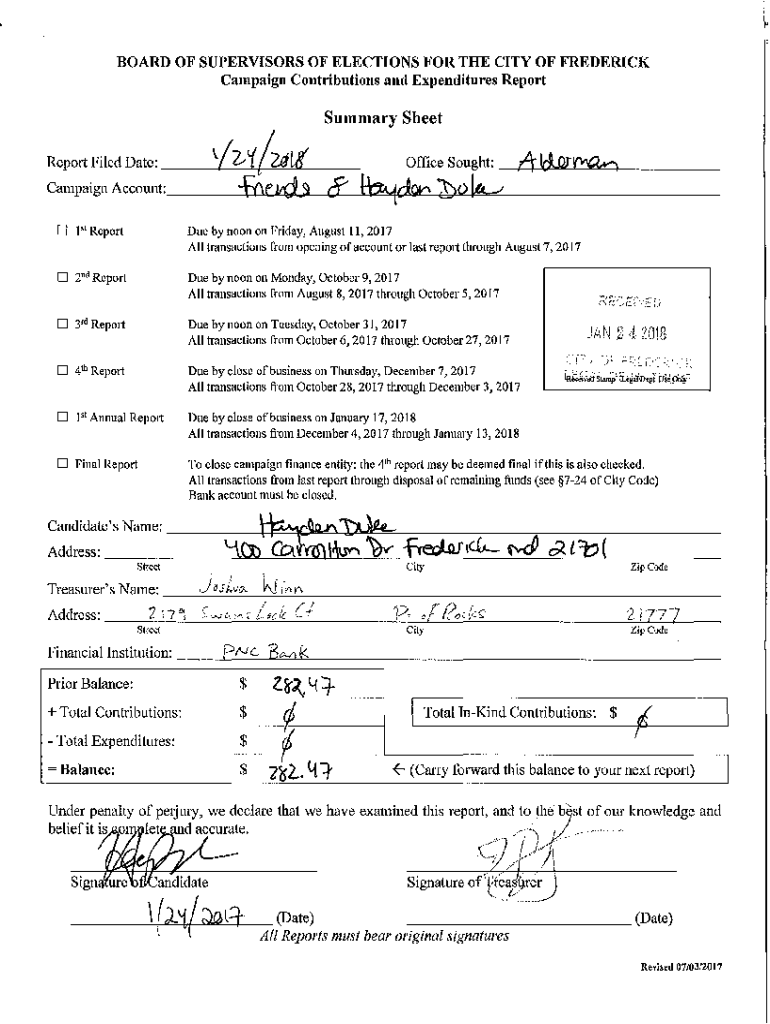 BOARD OF SUPERVISORS OF ELECTIONS FOR THE CITY OF FREDERICK
Campaign Contributions and Expenditures Report
Summary Sheet
Report Filed Date: 1/24/2018 Office Sought: Alderman
Campaign Account: Friends of Hayden Duke
☐ 1st Report Due by noon on Friday, August 11, 2017
All transactions from opening of account or last report through August 7, 2017
☐ 2nd Report Due by noon on Monday, October 9, 2017
All transactions from August 8, 2017 through October 5, 2017
RECEIVED
☐ 3rd Report Due by noon on Tuesday, October 31, 2017
All transactions from October 6, 2017 through October 27, 2017
JAN 24 2018
CITY OF FREDERICK
☐ 4th Report Due by close of business on Thursday, December 7, 2017
All transactions from October 28, 2017 through December 3, 2017
Received Stamp - Legal Dept Use Only
☐ 1st Annual Report Due by close of business on January 17, 2018
All transactions from December 4, 2017 through January 13, 2018
☐ Final Report To close campaign finance entity: the 4th report may be deemed final if this is also checked.
All transactions from last report through disposal of remaining funds (see §7-24 of City Code)
Bank account must be closed.
Candidate's Name: Hayden Duke
Address: 400 Carrollton Dr Frederick md 21701
Street City Zip Code
Treasurer's Name: Joshua Winn
Address: 2179 Ct Pt of Rocks 21777
Street City Zip Code
Financial Institution: PNC Bank
Prior Balance: $ 282.47
+ Total Contributions: $ ∅ Total In-Kind Contributions: $ ∅
- Total Expenditures: $ ∅
= Balance: $ 282.47 ← (Carry forward this balance to your next report)
Under penalty of perjury, we declare that we have examined this report, and to the best of our knowledge and
belief it is complete and accurate.
Signature of Candidate Signature of Treasurer
1/24/2017 (Date) (Date)
All Reports must bear original signatures
Revised 07/03/2017